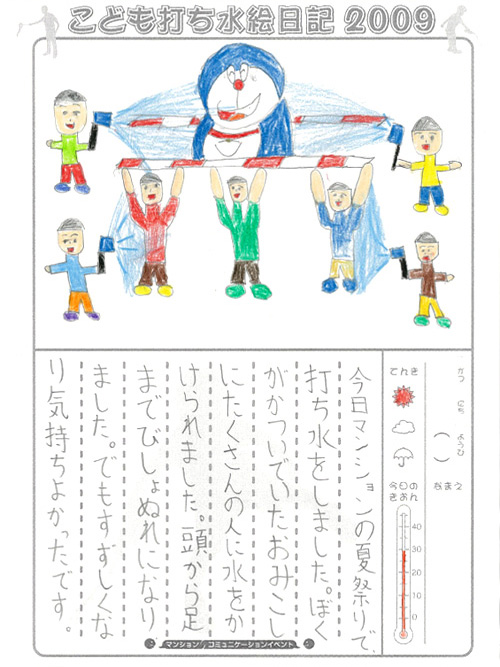 こども打ち水絵日記 2009
がつ にち ようび
( )
なまえ
てんき
今日の
きおん
40
30
20
10
0
今日マンションの夏祭りで、
打ち水をしました。ぼく
がかついでいたおみこし
にたくさんの人に水をか
けられました。頭から足
までびしょぬれになり
ました。でもすずしくな
り気持ちよかったです。
マンション コミュニケーションイベント